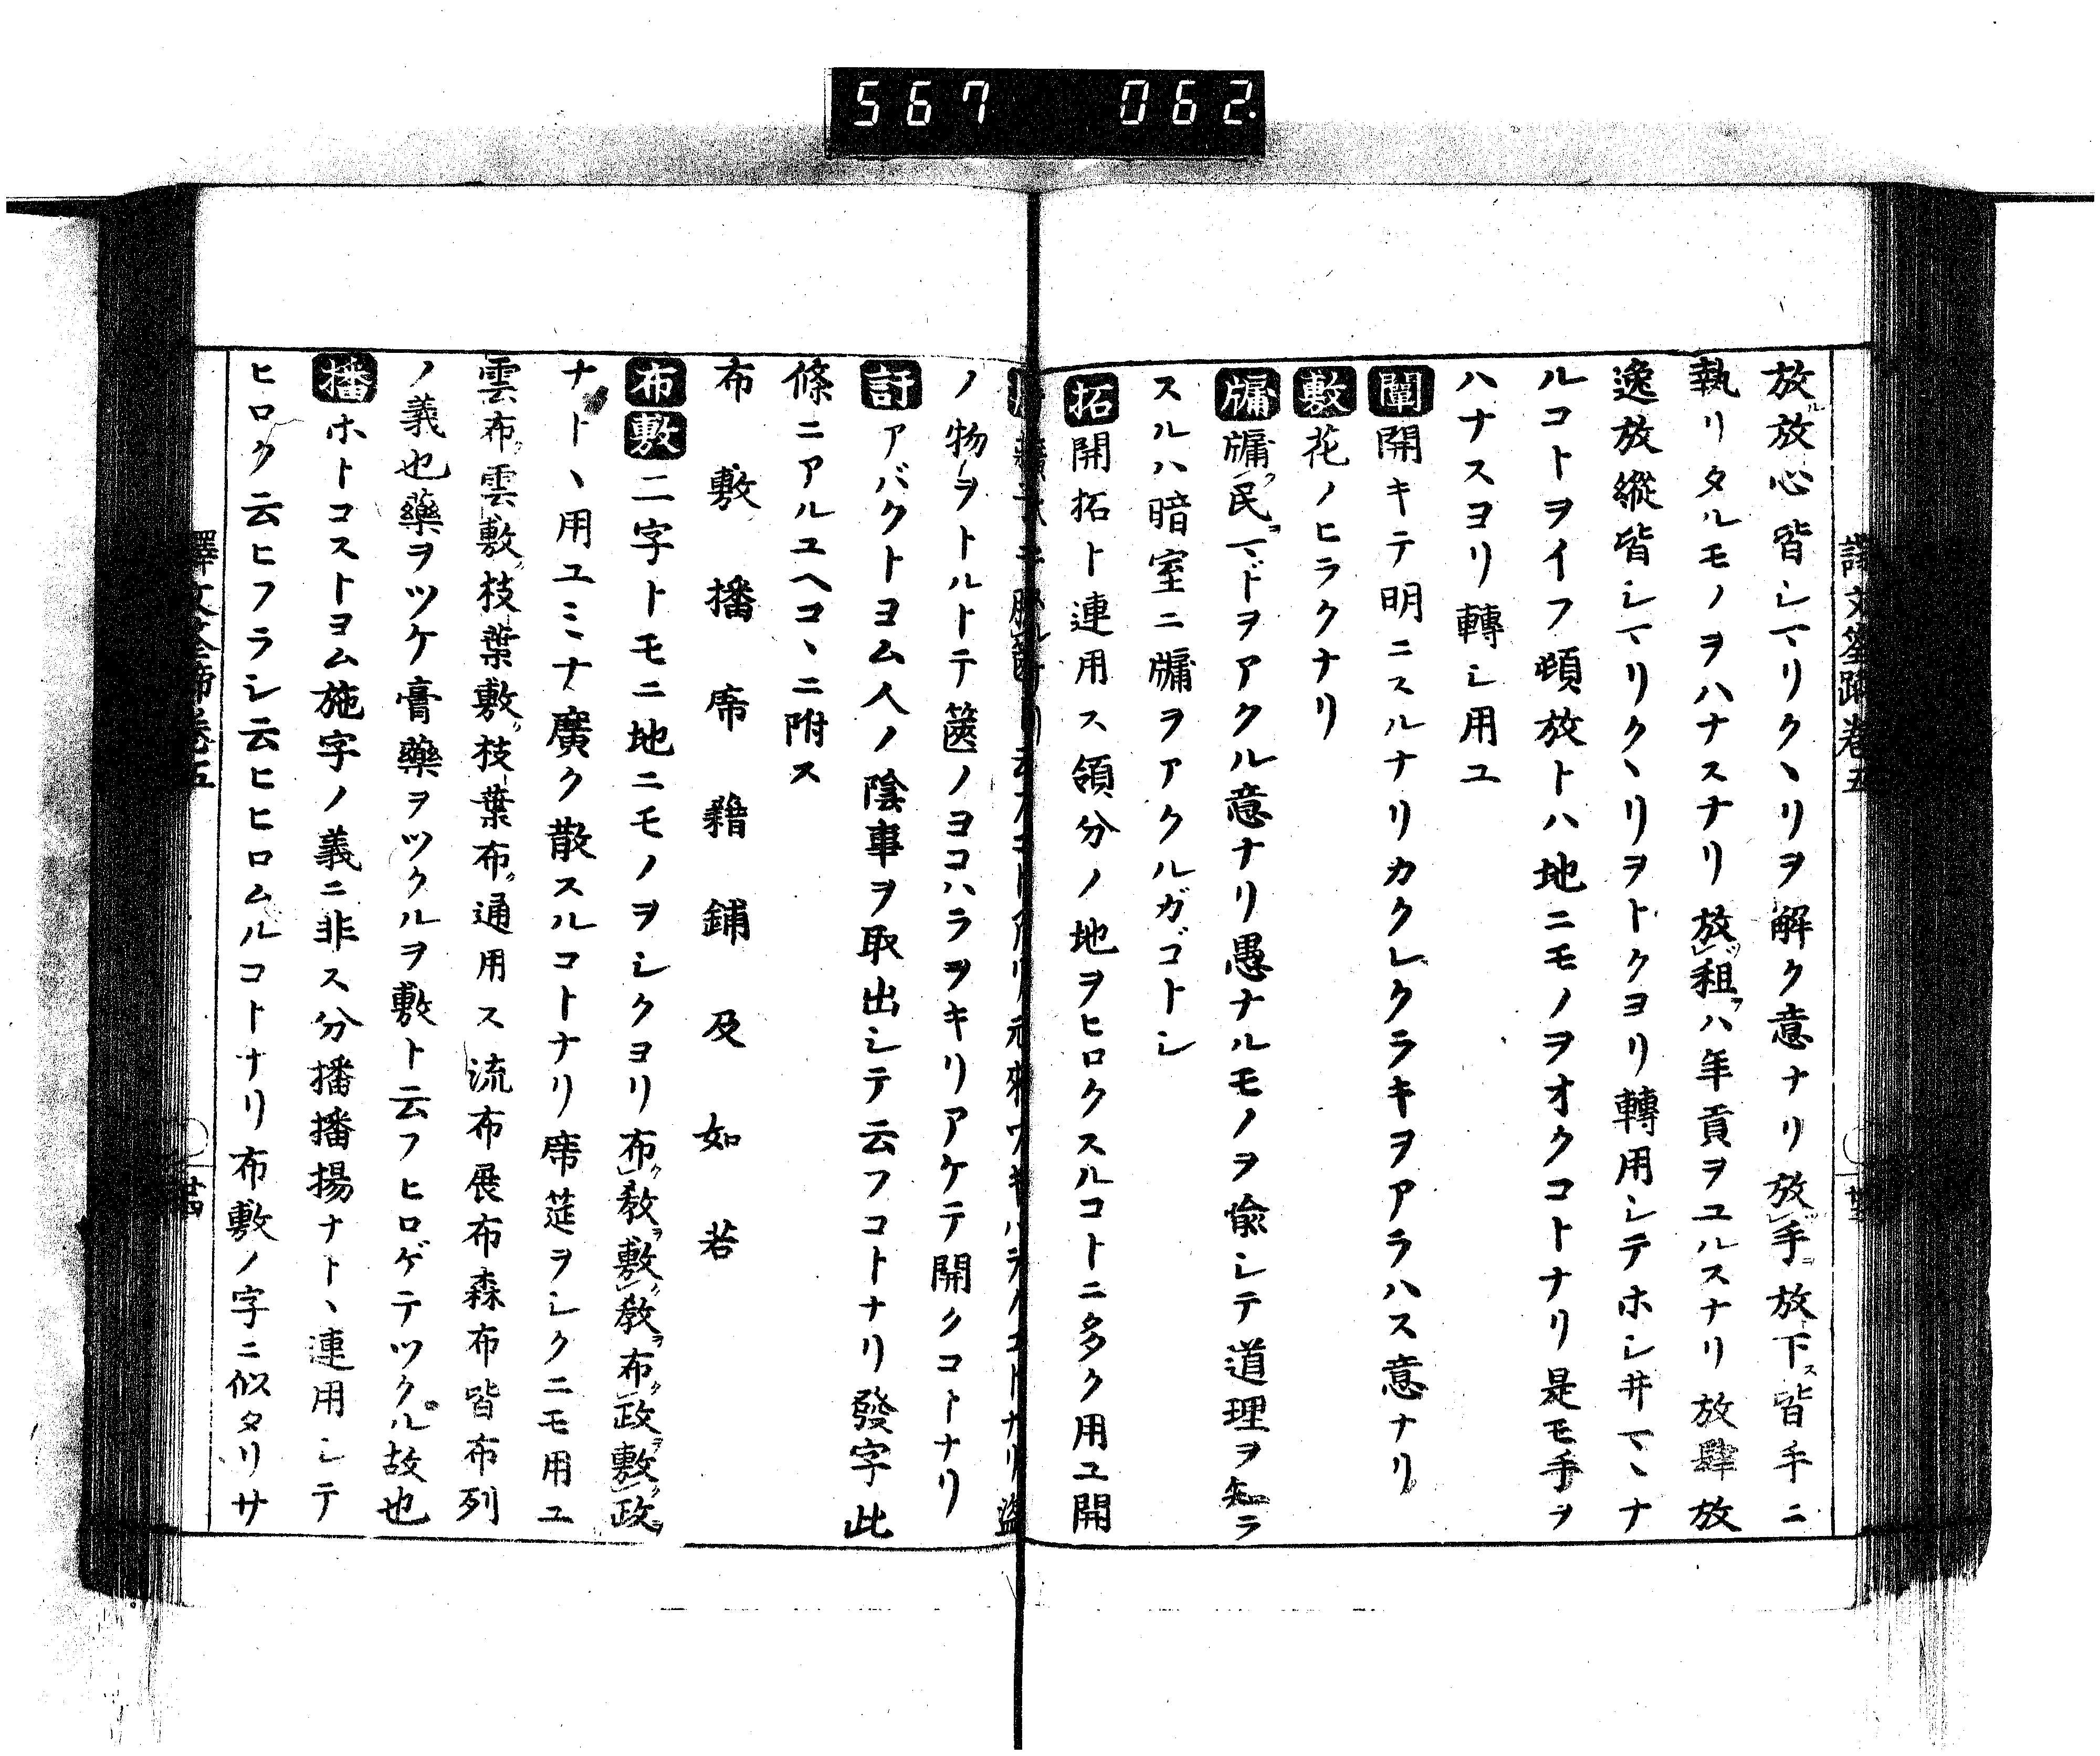 567 062
譯文筌蹄卷五
放放心皆シマリクヽリヲ解ク意ナリ放手放下皆手ニ
執リタルモノヲハナスナリ放租ハ年貢ヲユルスナリ放肆放
逸放縱皆シマリクヽリヲトクヨリ轉用シテホシ井マヽナ
ルコトヲイフ頓放トハ地ニモノヲオクコトナリ是モ手ヲ
ハナスヨリ轉シ用ユ
闡開キテ明ニスルナリカクレクラキヲアラハス意ナリ
敷花ノヒラクナリ
牖牖民マドヲアクル意ナリ愚ナルモノヲ喩シテ道理ヲ知ラ
スルハ暗室ニ牖ヲアクルガゴトシ
拓開拓ト連用ス領分ノ地ヲヒロクスルコトニ多ク用ユ開
ノ物ヲトルトテ篋ノヨコハラヲキリアケテ開クコトナリ
訐アバクトヨム人ノ陰事ヲ取出シテ云フコトナリ發字此
條ニアルユヘコヽニ附ス
布敷播席藉鋪及如若
布敷二字トモニ地ニモノヲシクヨリ布教敷教布政敷政
ナトヽ用ユミナ廣ク散スルコトナリ席莚ヲシクニモ用ユ
雲布雲敷枝葉敷枝葉布通用ス流布展布森布皆布列
ノ義也藥ヲツケ膏藥ヲツクルヲ敷ト云フヒロゲテツクル故也
播ホトコストヨム施字ノ義ニ非ス分播播揚ナトヽ連用シテ
ヒロク云ヒフラシ云ヒヒロムルコトナリ布敷ノ字ニ似タリサ
譯文筌蹄卷五